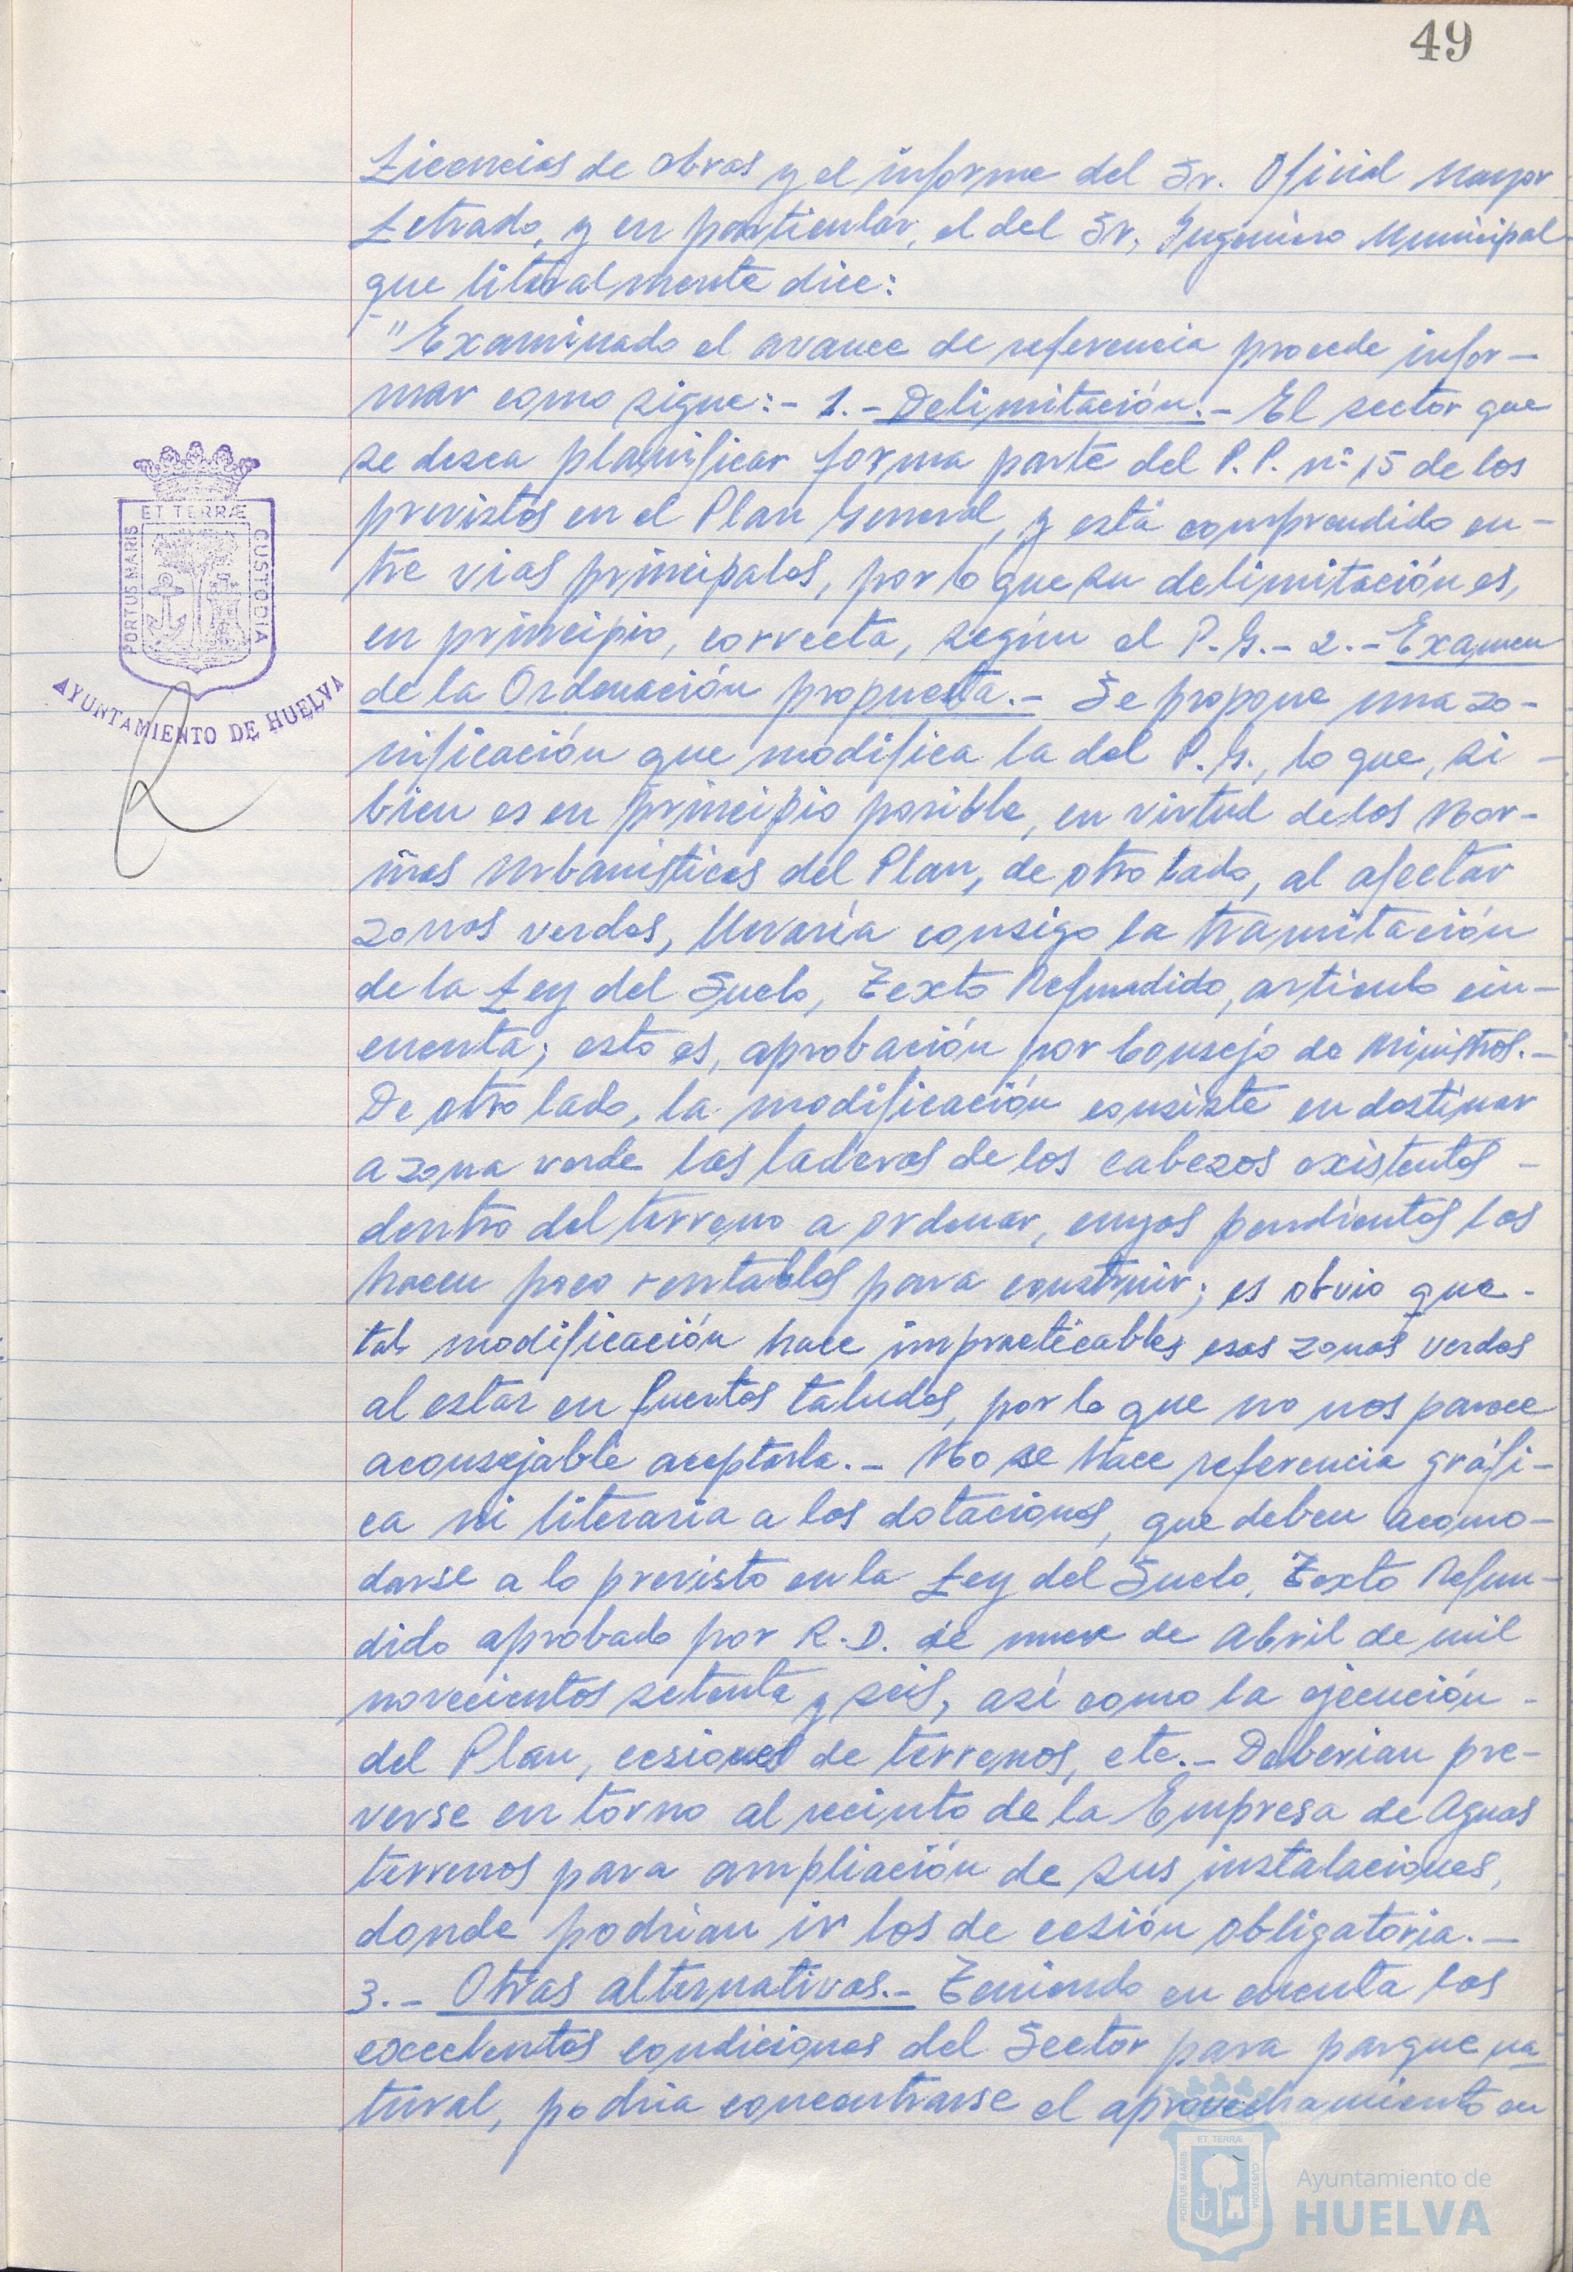 49
Licencias de obras y el informe del Sr. Oficial Mayor
Letrado, y en particular, el del Sr. Ingeniero Municipal
que literalmente dice:
"Examinado el avance de referencia procede infor-
mar como sigue:- 1.- Delimitación.- El sector que
se desea planificar forma parte del P.P. nº 15 de los
previstos en el Plan General, y está comprendido en-
tre vias principales, por lo que su delimitación es,
en principio, correcta, según el P.G.- 2.- Examen
de la Ordenación propuesta.- Se propone una zo-
nificación que modifica la del P.G., lo que, si -
bien es en principio posible, en virtud de las Nor-
mas Urbanisticas del Plan, de otro lado, al afectar
zonas verdes, llevaría consigo la tramitación
de la Ley del Suelo, Texto Refundido, artículo cin-
cuenta; esto es, aprobación por Consejo de Ministros.-
De otro lado, la modificación consiste en destinar
a zona verde las laderas de los cabezos existentes -
dentro del terreno a ordenar, cuyas pendientes las
hacen poco rentables para construir; es obvio que -
tal modificación hace impracticables esas zonas verdes
al estar en fuertes taludes, por lo que no nos parece
aconsejable aceptarla.- No se hace referencia gráfi-
ca ni literaria a las dotaciones, que deben acomo-
darse a lo previsto en la Ley del Suelo, Texto Refun-
dido aprobado por R.D. de nueve de Abril de mil
novecientos setenta y seis, así como la ejecución -
del Plan, cesiones de terrenos, etc.- Deberian pre-
verse en torno al recinto de la Empresa de Aguas
terrenos para ampliación de sus instalaciones,
donde podrían ir los de cesión obligatoria.-
3.- Otras alternativas.- Teniendo en cuenta las
excelentes condiciones del Sector para parque na-
tural, podría concentrarse el aprovechamiento en
ET TERRÆ
PORTUS MARIS
CUSTODIA
AYUNTAMIENTO DE HUELVA
ET TERRÆ
PORTUS MARIS
CUSTODIA
Ayuntamiento de
HUELVA